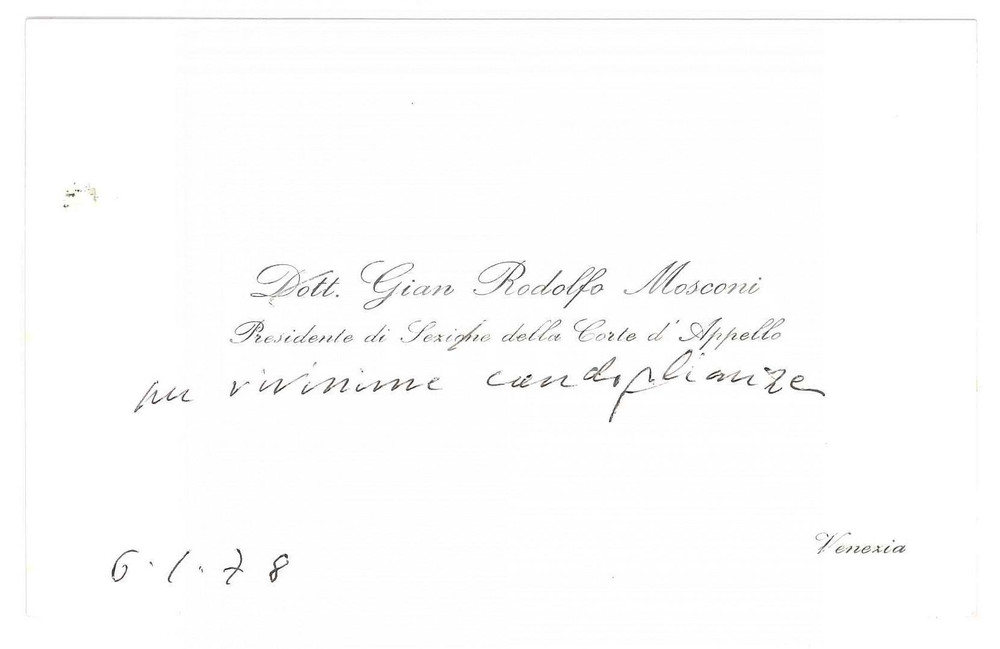 Dott. Gian Rodolfo Mosconi
Presidente di Sezione della Corte d'Appello
per vivissime condoglianze
Venezia
6.1.78